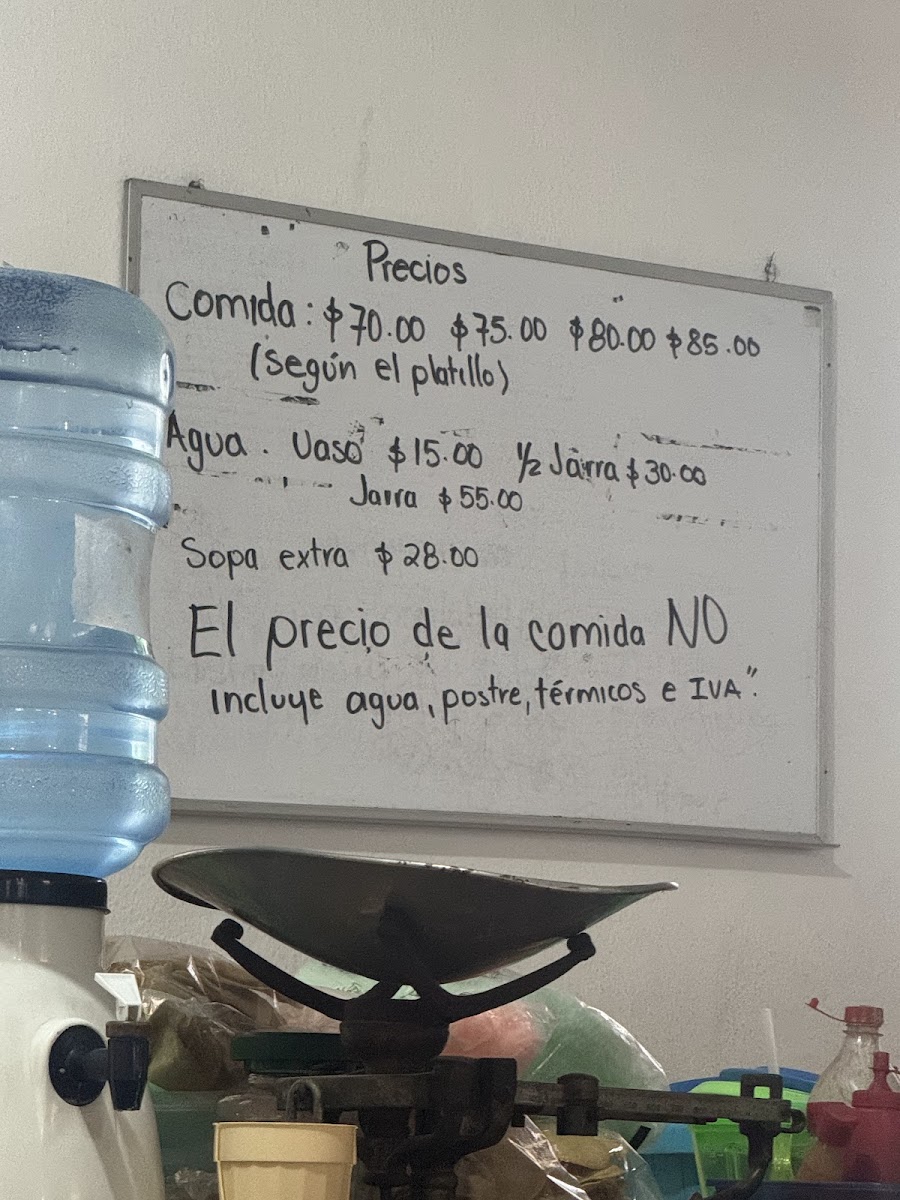 Precios
Comida: $70.00 $75.00 $80.00 $85.00
(según el platillo)
Agua. Vaso $15.00 1/2 Jarra $30.00
Jarra $55.00
Sopa extra $28.00
El precio de la comida NO
incluye agua, postre, térmicos e IVA".